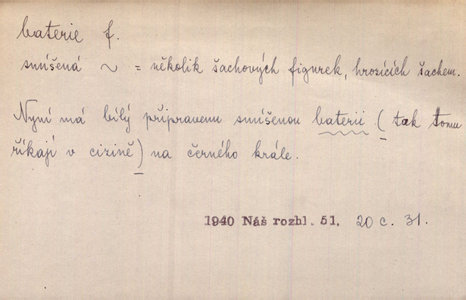 baterie f.
smíšená ~ = několik šachových figurek, hrozících šachem.
Nyní má bílý připravenu smíšenou baterii (tak tomu
říkají v cizině) na černého krále.
1940 Náš rozhl. 51, 20 c. 31.